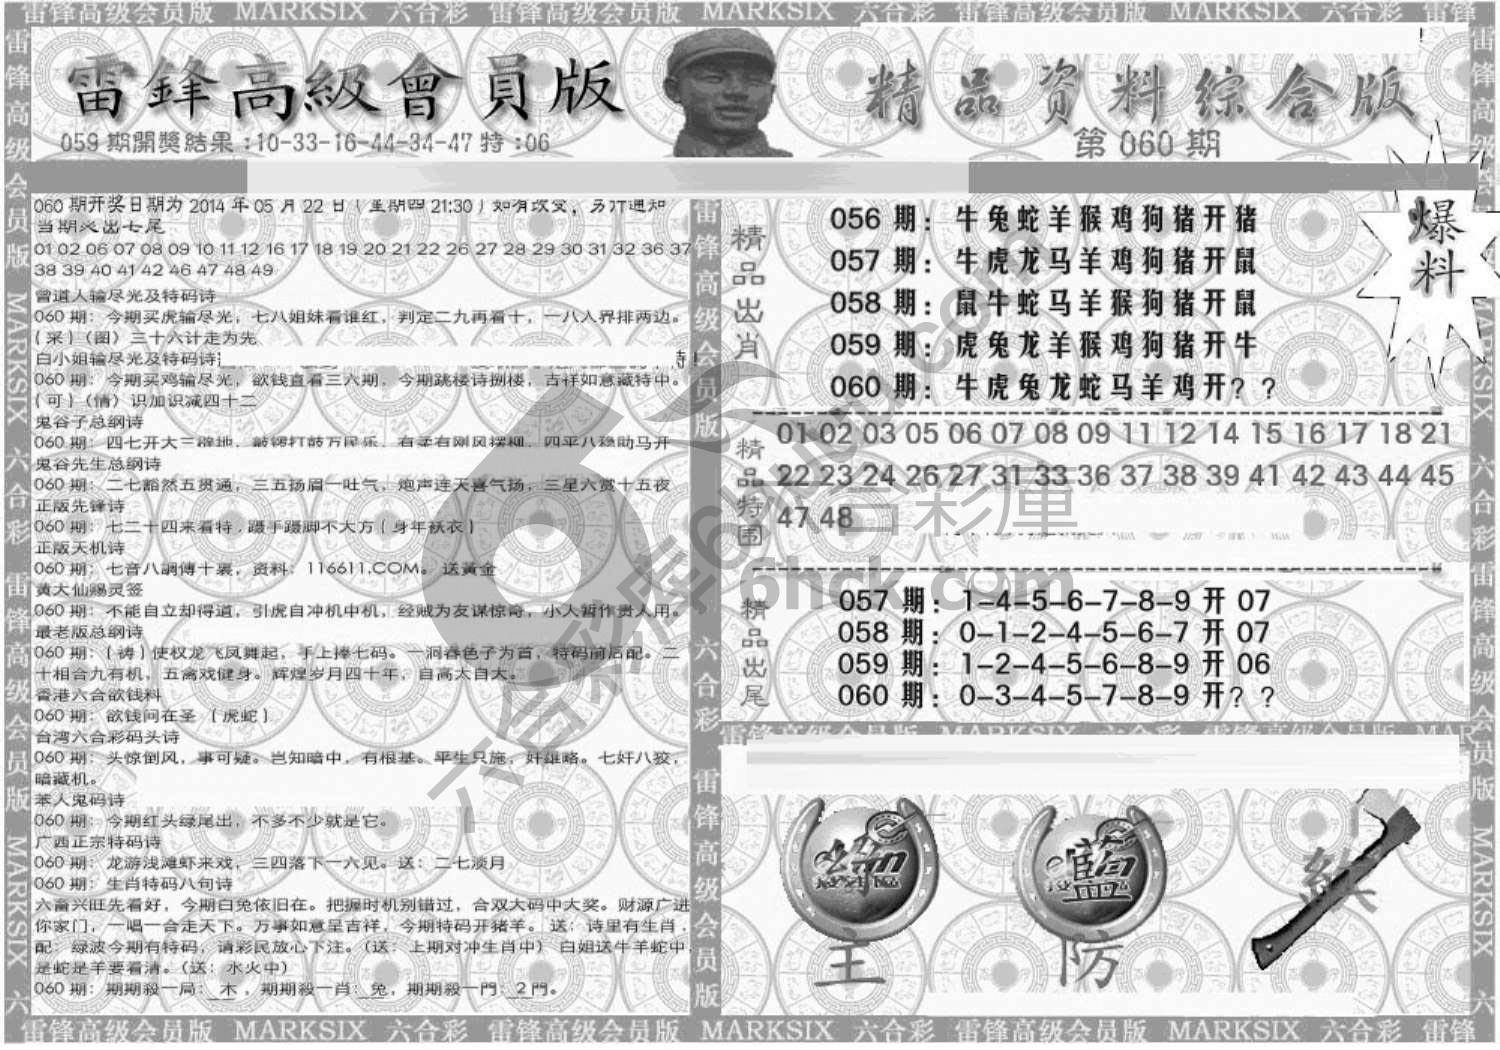 雷锋高级会员版 MARKSIX 六合彩 雷锋高级会员版 MARKSIX 六合彩 雷锋高级会员版 MARKSIX 六合彩 雷锋
雷鋒高級會員版
059 期開獎結果:10-33-16-44-34-47 特:06
精品资料综合版
第 060 期
爆料
060 期开奖日期为 2014 年 05 月 22 日(星期四 21:30)如有改变,另行通知
当期必出七尾
01 02 06 07 08 09 10 11 12 16 17 18 19 20 21 22 26 27 28 29 30 31 32 36 37
38 39 40 41 42 46 47 48 49
曾道人输尽光及特码诗
060 期:今期买虎输尽光,七八姐妹看谁红,判定二九再看十,一八入界排两边。
(采)(图)三十六计走为先
白小姐输尽光及特码诗
060 期:今期买鸡输尽光,欲钱直看三六期,今期跳楼诗捌楼,吉祥如意藏特中。
(可)(情)识加识减四十二
鬼谷子总纲诗
060 期:四七开大三辟地,敲锣打鼓万民乐,有柔有刚风摆柳,四平八稳助马开
鬼谷先生总纲诗
060 期:二七豁然五贯通,三五扬眉一吐气,炮声连天喜气扬,三星六赏十五夜
正版先锋诗
060 期:七二十四来看特,蹑手蹑脚不大方(身年袄衣)
正版天机诗
060 期:七音八調傳十裏,资料:116611.COM。送黃金
黄大仙赐灵签
060 期:不能自立却得道,引虎自冲机中机,经贼为友谋惊奇,小人暂作贵人用。
最老版总纲诗
060 期:(祷)使权龙飞凤舞起,手上捧七码。一洞春色子为首,特码前后配。二
十相合九有机,五禽戏健身。辉煌岁月四十年,自高大自大。
香港六合欲钱料
060 期:欲钱问在圣 (虎蛇)
台湾六合彩码头诗
060 期:头惊倒风,事可疑。岂知暗中,有根基。平生只施,奸雄略。七奸八狡,
暗藏机。
苯人鬼码诗
060 期:今期红头绿尾出,不多不少就是它。
广西正宗特码诗
060 期:龙游浅滩虾来戏,三四落下一六见。送:二七淡月
060 期:生肖特码八句诗
六畜兴旺先看好,今期白兔依旧在。把握时机别错过,合双大码中大奖。财源广进
你家门,一唱一合走天下。万事如意呈吉祥,今期特码开猪羊。送:诗里有生肖,
配:绿波今期有特码,请彩民放心下注。(送:上期对冲生肖中) 白姐送牛羊蛇中,
是蛇是羊要看清。(送:水火中)
060 期:期期殺一局:木,期期殺一肖:兔,期期殺一門:2門。
精品出肖
056 期:牛兔蛇羊猴鸡狗猪开猪
057 期:牛虎龙马羊鸡狗猪开鼠
058 期:鼠牛蛇马羊猴狗猪开鼠
059 期:虎兔龙羊猴鸡狗猪开牛
060 期:牛虎兔龙蛇马羊鸡开??
精品特围
01 02 03 05 06 07 08 09 11 12 14 15 16 17 18 21
22 23 24 26 27 31 33 36 37 38 39 41 42 43 44 45
47 48
精品出尾
057 期:1-4-5-6-7-8-9 开 07
058 期:0-1-2-4-5-6-7 开 07
059 期:1-2-4-5-6-8-9 开 06
060 期:0-3-4-5-7-8-9 开??
主
藍
防
六合彩庫
6hck.com
雷锋高级会员版 MARKSIX 六合彩 雷锋高级会员版 MARKSIX 六合彩 雷锋高级会员版 MARKSIX 六合彩 雷锋